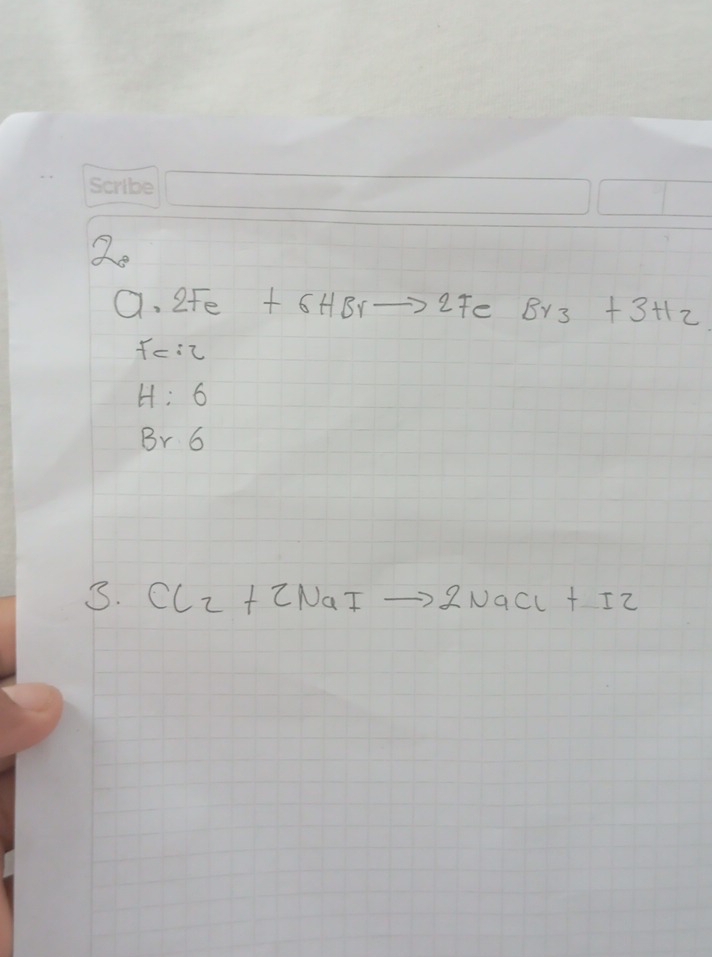 Scribe
2.
a. 2Fe + 6HBr → 2Fe Br3 + 3H2
Fe:2
H: 6
Br 6
3. Cl2 + 2NaI → 2NaCl + I2